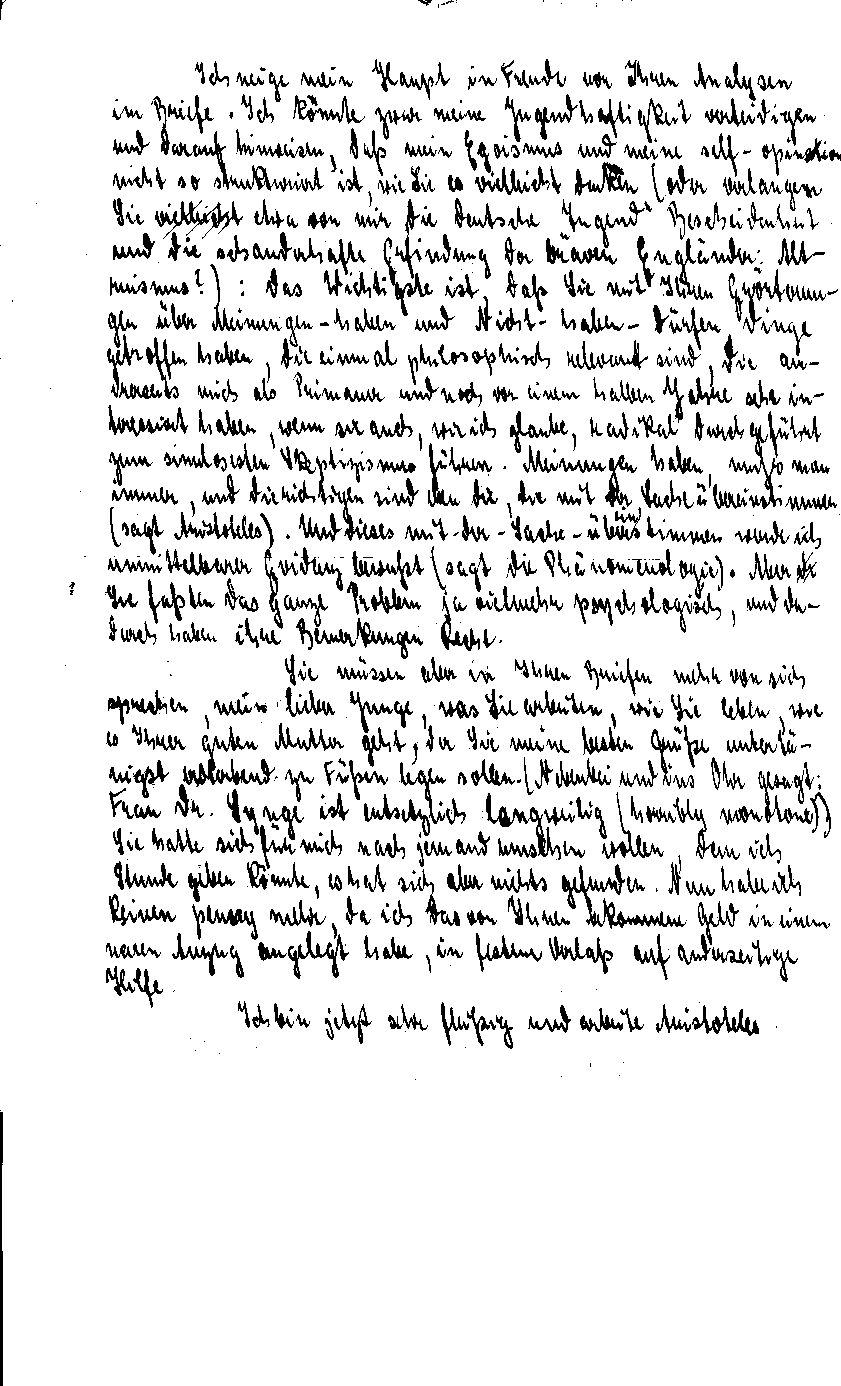 Ich neige mein Haupt in Freude vor Ihren Analysen
im Briefe. Ich könnte zwar meine Jugendhaftigkeit verteidigen
und darauf hinweisen, daß mein Egoismus und meine self-opiniation
nicht so strukturiert ist, wie Sie es vielleicht denken (oder verlangen
Sie vielleicht etwa von mir die deutsche "Jugend" Bescheidenheit
und die schauderhafte Erfindung der braven Engländer: Alt-
ruismus?) : Das Wichtigste ist, daß Sie mit Ihren Erörterun-
gen über Meinungen-haben und Nicht-haben-dürfen Dinge
getroffen haben, die einmal philosophisch relevant sind, die an-
drerseits mich als Primaner und noch vor einem halben Jahre sehr in-
teressiert haben, wenn sie auch, wie ich glaube, radikal durchgeführt
zum sinnlosesten Skeptizismus führen. Meinungen haben, muß man
immer, und die richtigen sind eben die, die mit der Sache übereinstimmen
(sagt Aristoteles). Und dieses mit-der-Sache-übereinstimmen werde ich
unmittelbarer Evidenz bewußt (sagt die Phänomenologie). Aber
Sie faßten das ganze Problem ja vielmehr psychologisch, und da-
durch haben ihre Bemerkungen Recht.
Sie müssen aber in Ihren Briefen mehr von sich
sprechen, mein lieber Junge, was Sie arbeiten, wie Sie leben, wie
es Ihrer guten Mutter geht, der Sie meine besten Grüße untertä-
nigst ersterbend zu Füßen legen sollen. (Nebenbei und ins Ohr gesagt:
Frau Dr. Synge ist entsetzlich langweilig (horribly monotone))
Sie hatte sich für mich nach jemand umsehen wollen, dem ich
Stunde geben könnte, es hat sich aber nichts gefunden. Nun habe ich
keinen penny mehr, da ich das von Ihnen bekommene Geld in einem
neuen Anzug angelegt habe, in festem Verlaß auf anderseitige
Hilfe.
Ich bin jetzt sehr fleißig und arbeite Aristoteles